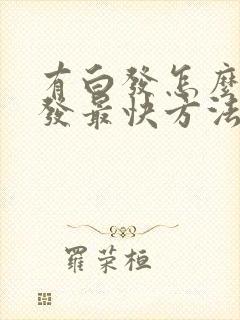 有白發怎麼
發最快方法
羅榮桓